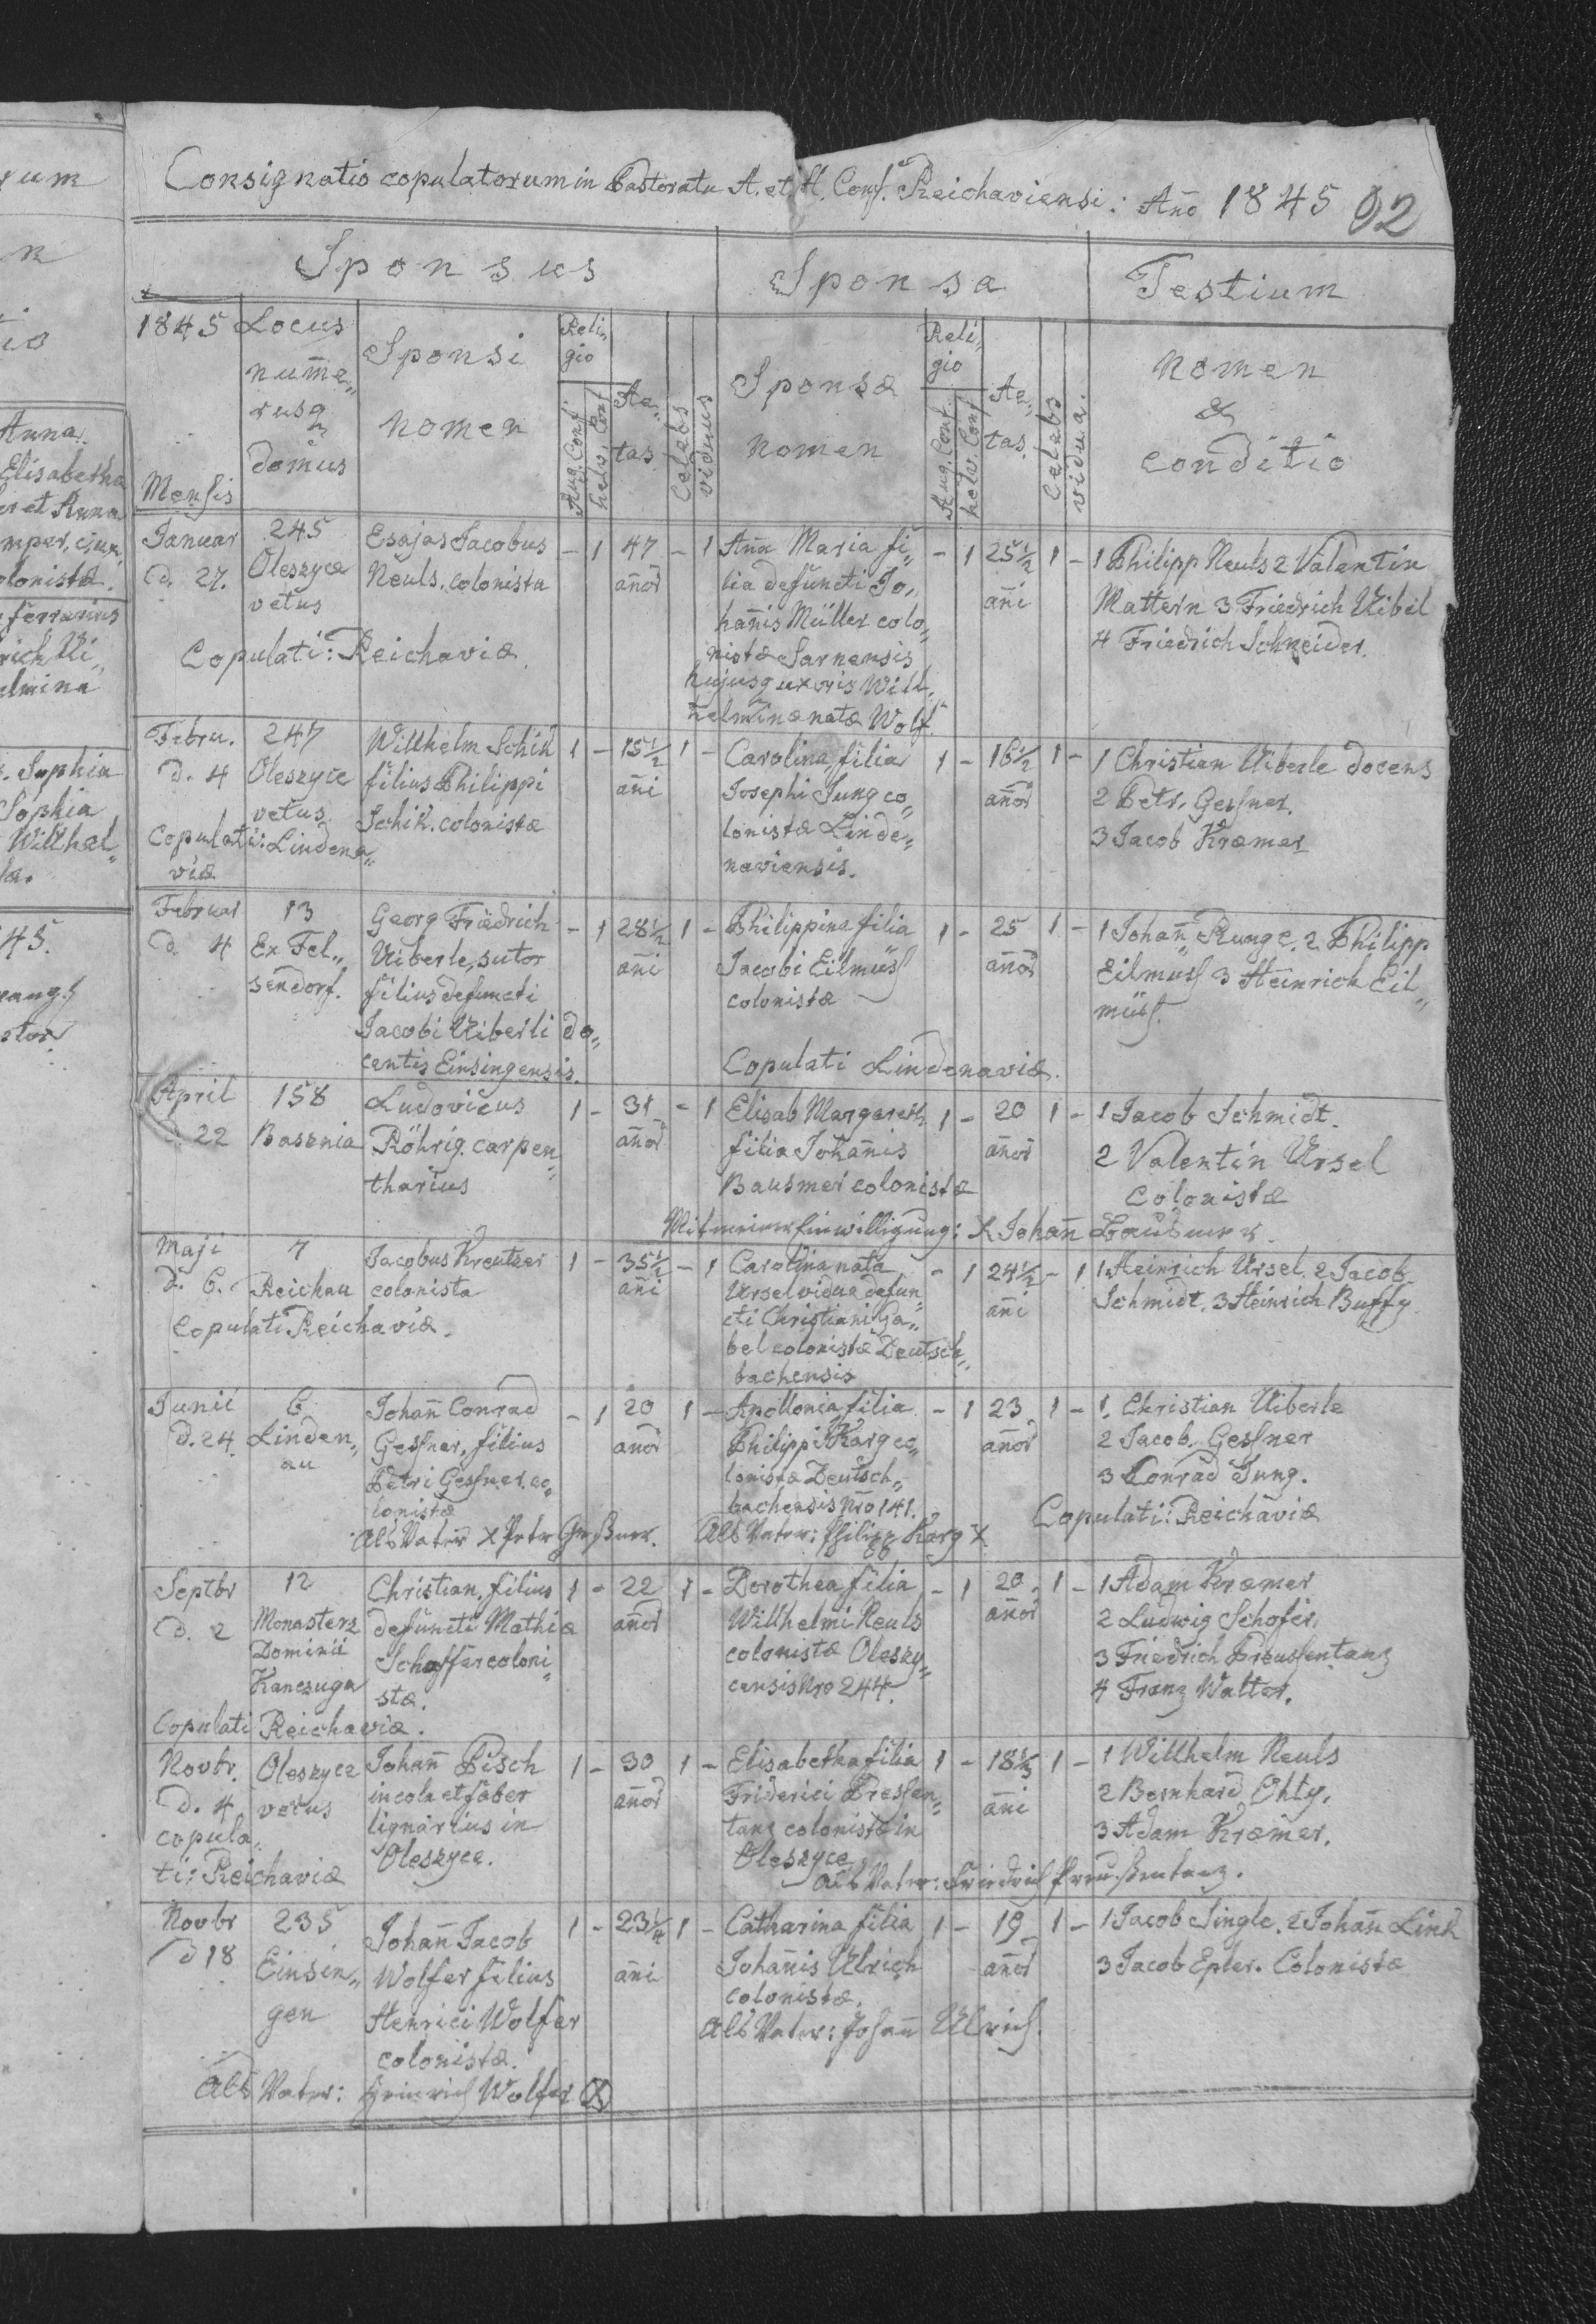 Consignatio copulatorum in Pastoratu A. et H. Conf. Reichaviensi: Año 1845 92
Sponsus Sponsa Testium
1845 Mensis
Locus num̄e„
rusq
domus
Sponsi
nomen
Reli„
gio
Aug. Conf.
helv. Conf
Ae„
tas
Celebs
viduus
Sponsæ
nomen
Reli„
gio
Aug. Conf.
helv. Conf
Ae„
tas.
Celebs
vidua.
Nomen
&
conditio
Januar
d. 27.
245
Oleszyce
vetus
Esajas Jacobus
Neuls. colonista
- 1 47 - 1
añor
Aña Maria fi„
lia defuncti Jo„
hañis Müller colo„
nistæ Sarnensis
hujusq uxoris Will„
helminæ natæ Wolf.
- 1 25½ 1 -
añi
1 Philipp Neuls 2 Valentin
Mattern 3 Friedrich Uibel
4 Friedrich Schneider.
Copulati: Reichaviæ.
Febru.
d. 4
247
Oleszyce
vetus
Willhelm Schik
filius Philippi
Schik. colonistæ
1 - 15½ 1 -
añi
Carolina filia
Josephi Jung co„
lonistæ Linde„
naviensis.
1 - 16½ 1 -
añor
1 Christian Uiberle docens
2 Petr. Gessner.
3 Jacob Kræmer
Copulati: Lindena„
viæ
Februar
d. 4
13
Ex Fel„
sendorf.
Georg Friedrich
Uiberle, sutor
filius defuncti
Jacobi Uiberli do„
centis Einsingensis.
- 1 28½ 1 -
añi
Philippina filia
Jacobi Eilmüss
colonistæ
1 - 25 1 -
añor
1 Johañ Runge. 2 Philipp
Eilmuss 3 Heinrich Eil„
müss.
Copulati Lindenaviæ.
April
d. 22
158
Basznia
Ludovicus
Röhrig. carpen„
tharius
1 - 31 - 1
añor
Elisab Margareth
filia Johañis
Bausmer colonistæ
1 - 20 1 -
añor
1 Jacob Schmidt.
2 Valentin Ursel
Colonistæ
Mit meiner Einwilligung: X Johañ Bausmer.
Maji
d. 6.
7
Reichau
Jacobus Kreutzer
colonista
1 - 35½ - 1
añi
Carolina nata
Ursel vidua defun„
cti Christiani Ga„
bel colonistæ Deutsch„
bachensis
- 1 24½ - 1
añi
1 Heinrich Ursel. 2 Jacob
Schmidt. 3 Heinrich Buffy
Copulati Reichaviæ.
Junii
d. 24.
6
Linden„
au
Johañ Conrad
Gessner, filius
Petri Gessner. co„
lonistæ
- 1 20 1 -
añor
Apollonia filia
Philippi Karg co„
lonistæ Deutsch„
bachensis Nro 141.
- 1 23 1 -
añor
1. Christian Uiberle
2 Jacob. Gessner
3 Conrad Jung.
Copulati: Reichaviæ
Als Vater X Peter Geßner. Als Vater: Philipp Karg X
Septbr
d. 2
12
Monasterz
Dominii
Kanczuga
Christian, filius
defuncti Mathiæ
Schæffer coloni„
stæ.
1 - 22 1 -
añor
Dorothea filia
Willhelmi Neuls
colonistæ Oleszy„
censis Nro 244.
- 1 20 1 -
añor
1 Adam Kræmer
2 Ludwig Schofer,
3 Friedrich Preussentanz
4 Franz Walter.
Copulati Reichaviæ.
Novbr.
d. 4
Oleszyce
vetus
Johañ Pisch
incola et faber
lignarius in
Oleszyce.
1 - 30 1 -
añor
Elisabetha filia
Friderici Pressen„
tanz colonistæ in
Oleszyce
1 - 18⅓ 1 -
añi
1 Willhelm Neuls
2 Bernhard Ohly,
3 Adam Kræmer.
copula„
ti: Reichaviæ
Als Vater: Friedrich Preußentanz.
Novbr
d 18
235
Einsin„
gen
Johañ Jacob
Wolfer filius
Henrici Wolfer
colonistæ.
1 - 23¼ 1 -
añi
Catharina filia
Johañis Ulrich
colonistæ.
1 - 19 1 -
añor
1 Jacob Single. 2 Johañ Link
3 Jacob Epler. Colonistæ
Als Vater: Johañ Ulrich.
Als Vater: Heinrich Wolfer X